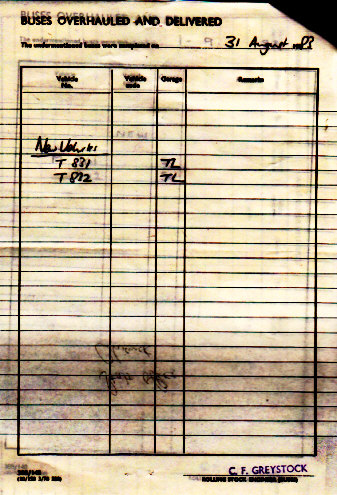 BUSES OVERHAULED AND DELIVERED
The undermentioned buses were completed on 31 August 1983
Vehicle No. Vehicle code Garage Remarks
New Vehicles
T 831 TL
T 832 TL
C. F. GREYSTOCK
ROLLING STOCK ENGINEER (BUSES)